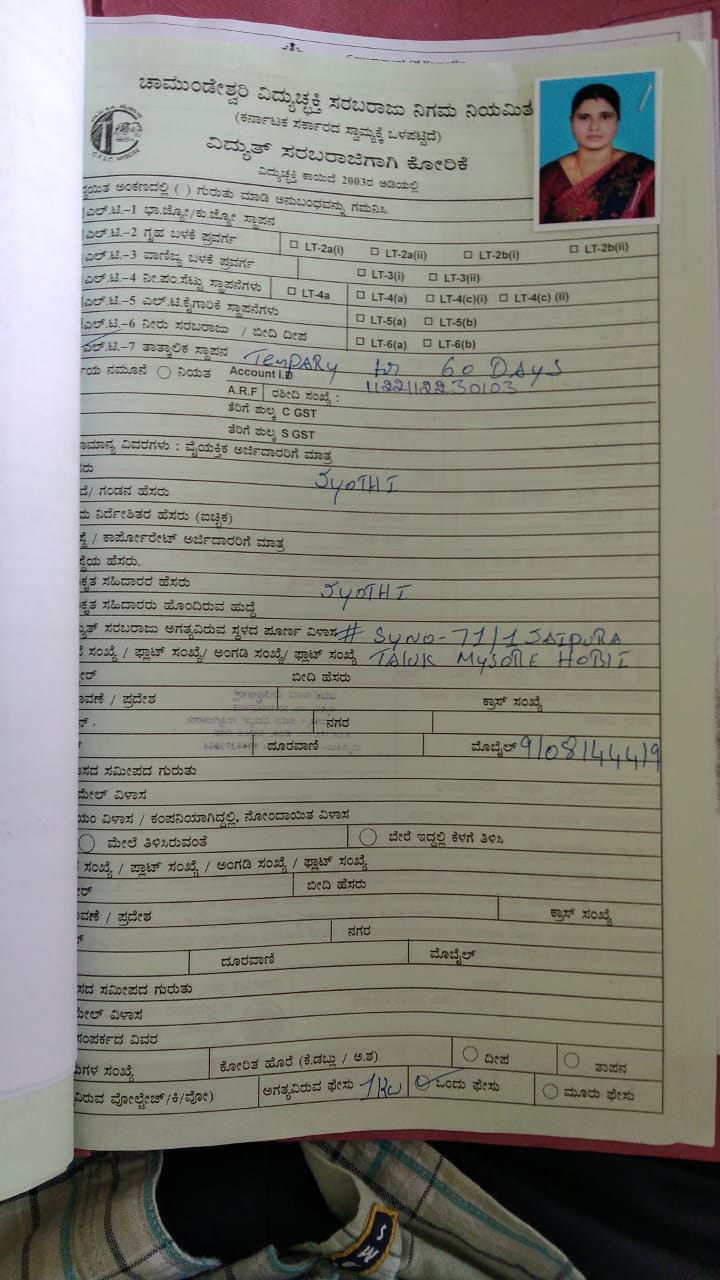 ಚಾಮುಂಡೇಶ್ವರಿ ವಿದ್ಯುಚ್ಛಕ್ತಿ ಸರಬರಾಜು ನಿಗಮ ನಿಯಮಿತ
(ಕರ್ನಾಟಕ ಸರ್ಕಾರದ ಸ್ವಾಮ್ಯಕ್ಕೆ ಒಳಪಟ್ಟಿದೆ)
ವಿದ್ಯುತ್ ಸರಬರಾಜಿಗಾಗಿ ಕೋರಿಕೆ
ವಿದ್ಯುಚ್ಛಕ್ತಿ ಕಾಯಿದೆ 2003ರ ಅಡಿಯಲ್ಲಿ
ಅಂಕಣದಲ್ಲಿ ( ) ಗುರುತು ಮಾಡಿ ಅನುಬಂಧವನ್ನು ಗಮನಿಸಿ.
ಎಲ್.ಟಿ.–1 ಭಾ.ಜ್ಯೋ/ಕು.ಜ್ಯೋ ಸ್ಥಾಪನ
ಎಲ್.ಟಿ.–2 ಗೃಹ ಬಳಕೆ ಪ್ರವರ್ಗ LT-2a(i) LT-2a(ii) LT-2b(i) LT-2b(ii)
ಎಲ್.ಟಿ.–3 ವಾಣಿಜ್ಯ ಬಳಕೆ ಪ್ರವರ್ಗ LT-3(i) LT-3(ii)
ಎಲ್.ಟಿ.–4 ನೀ.ಪಂ.ಸೆಟ್ಟು ಸ್ಥಾಪನೆಗಳು LT-4a LT-4(a) LT-4(c)(i) LT-4(c) (ii)
ಎಲ್.ಟಿ.–5 ಎಲ್.ಟಿ.ಕೈಗಾರಿಕೆ ಸ್ಥಾಪನೆಗಳು LT-5(a) LT-5(b)
ಎಲ್.ಟಿ.–6 ನೀರು ಸರಬರಾಜು / ಬೀದಿ ದೀಪ LT-6(a) LT-6(b)
ಎಲ್.ಟಿ.–7 ತಾತ್ಕಾಲಿಕ ಸ್ಥಾಪನ TEMPARY for 60 DAYS
ನಮೂನೆ ನಿಯತ Account I.D 1122112230103
A.R.F ರಶೀದಿ ಸಂಖ್ಯೆ :
ತೆರಿಗೆ ಶುಲ್ಕ C GST
ತೆರಿಗೆ ಶುಲ್ಕ S GST
ವಿವರಗಳು : ವೈಯಕ್ತಿಕ ಅರ್ಜಿದಾರರಿಗೆ ಮಾತ್ರ
JYOTHI
ಗಂಡನ ಹೆಸರು
ನಿರ್ದೇಶಿತರ ಹೆಸರು (ಐಚ್ಛಿಕ)
/ ಕಾರ್ಪೋರೇಟ್ ಅರ್ಜಿದಾರರಿಗೆ ಮಾತ್ರ
ಹೆಸರು.
ಸಹಿದಾರರ ಹೆಸರು JYOTHI
ಸಹಿದಾರರು ಹೊಂದಿರುವ ಹುದ್ದೆ
ಸರಬರಾಜು ಅಗತ್ಯವಿರುವ ಸ್ಥಳದ ಪೂರ್ಣ ವಿಳಾಸ # SYNO-71/1 JAIPURA
ಸಂಖ್ಯೆ / ಫ್ಲಾಟ್ ಸಂಖ್ಯೆ/ ಅಂಗಡಿ ಸಂಖ್ಯೆ/ ಫ್ಲಾಟ್ ಸಂಖ್ಯೆ TAWK MYSORE HOBLI
ಬೀದಿ ಹೆಸರು
/ ಪ್ರದೇಶ ಕ್ರಾಸ್ ಸಂಖ್ಯೆ
ನಗರ
ದೂರವಾಣಿ ಮೊಬೈಲ್ 9108144419
ಸಮೀಪದ ಗುರುತು
ವಿಳಾಸ
ವಿಳಾಸ / ಕಂಪನಿಯಾಗಿದ್ದಲ್ಲಿ, ನೋಂದಾಯಿತ ವಿಳಾಸ
ಮೇಲೆ ತಿಳಿಸಿರುವಂತೆ ಬೇರೆ ಇದ್ದಲ್ಲಿ ಕೆಳಗೆ ತಿಳಿಸಿ
ಸಂಖ್ಯೆ / ಪ್ಲಾಟ್ ಸಂಖ್ಯೆ / ಅಂಗಡಿ ಸಂಖ್ಯೆ / ಫ್ಲಾಟ್ ಸಂಖ್ಯೆ
ಬೀದಿ ಹೆಸರು
/ ಪ್ರದೇಶ ಕ್ರಾಸ್ ಸಂಖ್ಯೆ
ನಗರ
ದೂರವಾಣಿ ಮೊಬೈಲ್
ಸಮೀಪದ ಗುರುತು
ವಿಳಾಸ
ವಿವರ
ಸಂಖ್ಯೆ ಕೋರಿತ ಹೊರೆ (ಕೆ.ಡಬ್ಲು / ಅ.ಶ) ದೀಪ ತಾಪನ
ವೋಲ್ಟೇಜ್/ಕಿ/ವೋ) ಅಗತ್ಯವಿರುವ ಫೇಸು 1KW ಒಂದು ಫೇಸು ಮೂರು ಫೇಸು